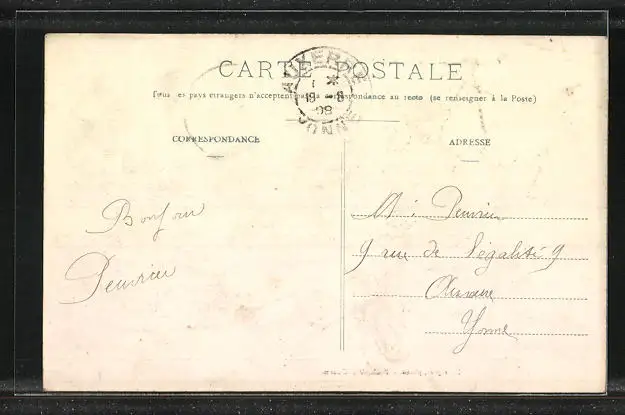 CARTE POSTALE
Tous les pays étrangers n'acceptent pas la correspondance au recto (se renseigner à la Poste)
AUXERRE
19 - 8
09
YONNE
CORRESPONDANCE
Bonjour
ADRESSE
9 rue de l'égalité 9
Auxerre
Yonne